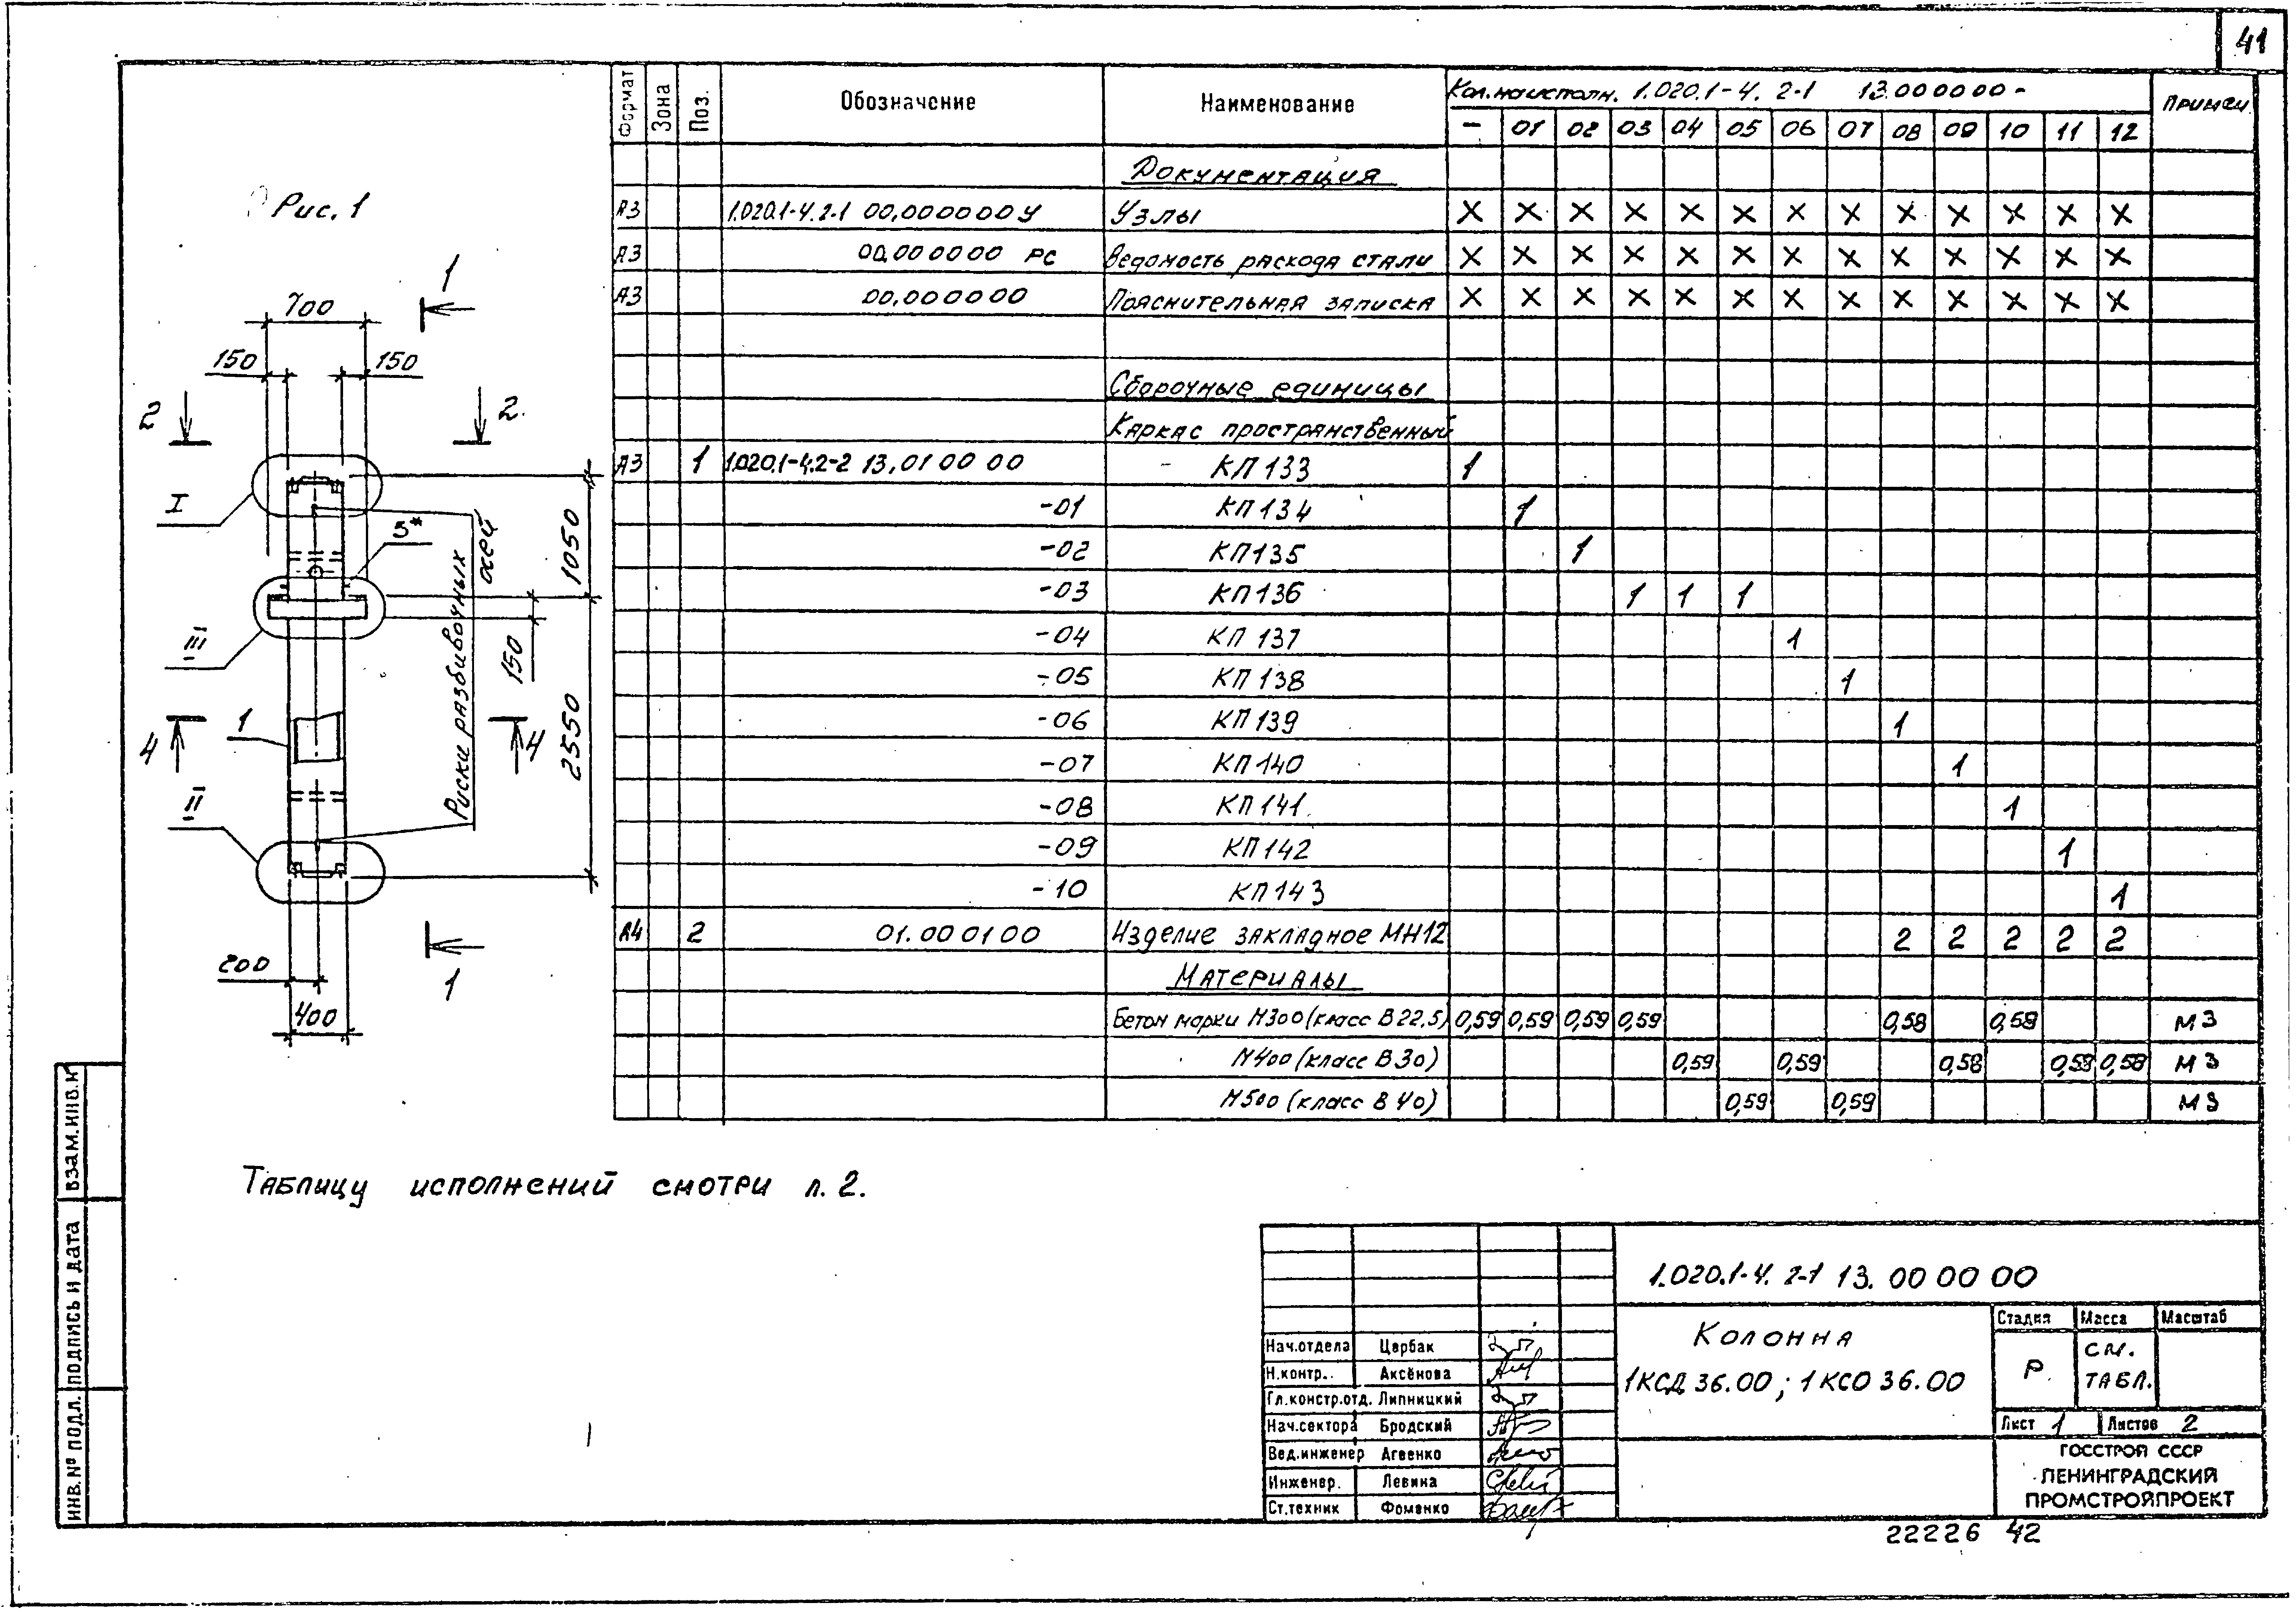 41
Рис. 1
1
700
150 150
2 2
I
3*
Риски разбивочных осей
1050
III
150
4 1 4
2550
II
200
400
1
Формат Зона Поз. Обозначение Наименование Кол. на исполн. 1.020.1-4. 2-1 13.000000- Примеч
- 01 02 03 04 05 06 07 08 09 10 11 12
Документация
А3 1.020.1-4.2-1 00.000000У Узлы X X X X X X X X X X X X X
А3 00.000000 РС Ведомость расхода стали X X X X X X X X X X X X X
А3 00.000000 Пояснительная записка X X X X X X X X X X X X X
Сборочные единицы
Каркас пространственный
А3 1 1.020.1-4.2-2 13.01 00 00 КП 133 1
-01 КП 134 1
-02 КП 135 1
-03 КП 136 1 1 1
-04 КП 137 1
-05 КП 138 1
-06 КП 139 1
-07 КП 140 1
-08 КП 141 1
-09 КП 142 1
-10 КП 143 1
А4 2 01.00 01 00 Изделие закладное МН12 2 2 2 2 2
Материалы
Бетон марки М300 (класс В 22,5) 0,59 0,59 0,59 0,59 0,58 0,58 м3
М400 (класс В 30) 0,59 0,59 0,58 0,58 0,58 м3
М500 (класс В 40) 0,59 0,59 м3
Таблицу исполнений смотри л. 2.
ИНВ. № ПОДЛ. ПОДПИСЬ И ДАТА ВЗАМ. ИНВ. №
1.020.1-4. 2-1 13. 00 00 00
Нач.отдела Щербак
Н.контр. Аксёнова
Гл.констр.отд. Липницкий
Нач.сектора Бродский
Вед.инженер Агеенко
Инженер. Левина
Ст.техник Фоменко
Колонна
1КСД 36.00; 1КСО 36.00
Стадия Масса Масштаб
Р см. табл.
Лист 1 Листов 2
ГОССТРОЙ СССР
ЛЕНИНГРАДСКИЙ
ПРОМСТРОЙПРОЕКТ
22226 42